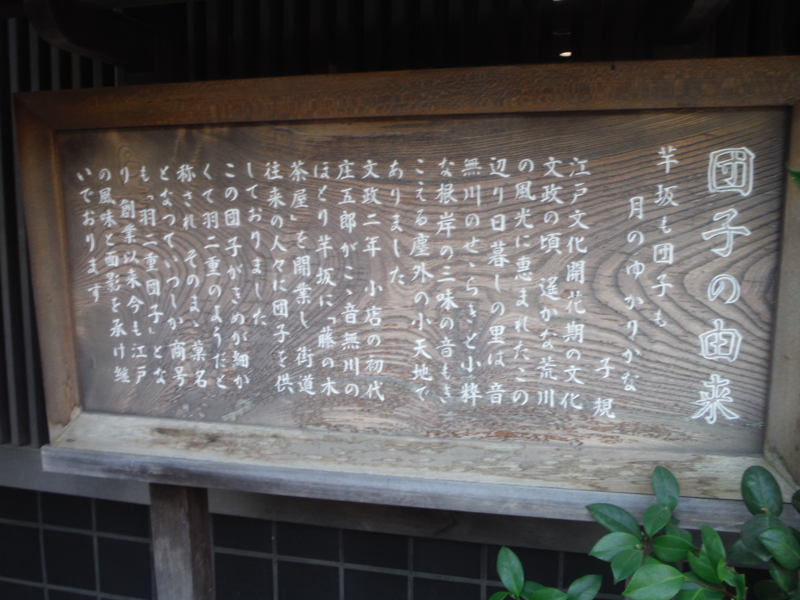 団子の由来
芋坂も団子も
月のゆかりかな
子規
江戸文化開花期の文化
文政の頃 遥かな荒川
の風光に恵まれたこの
辺り日暮しの里は 音
無川のせゝらぎと小粋
な根岸の三味の音もき
こえる塵外の小天地で
ありました
文政二年 小店の初代
庄五郎がこゝ音無川の
ほとり芋坂に「藤の木
茶屋」を開業し 街道
往来の人々に団子を供
しておりました
この団子がきめが細か
くて羽二重のようだと
称され そのまゝ菓名
となって いつしか商号
も「羽二重団子」とな
り 創業以来今も江戸
の風味と面影を承け継
いでおります